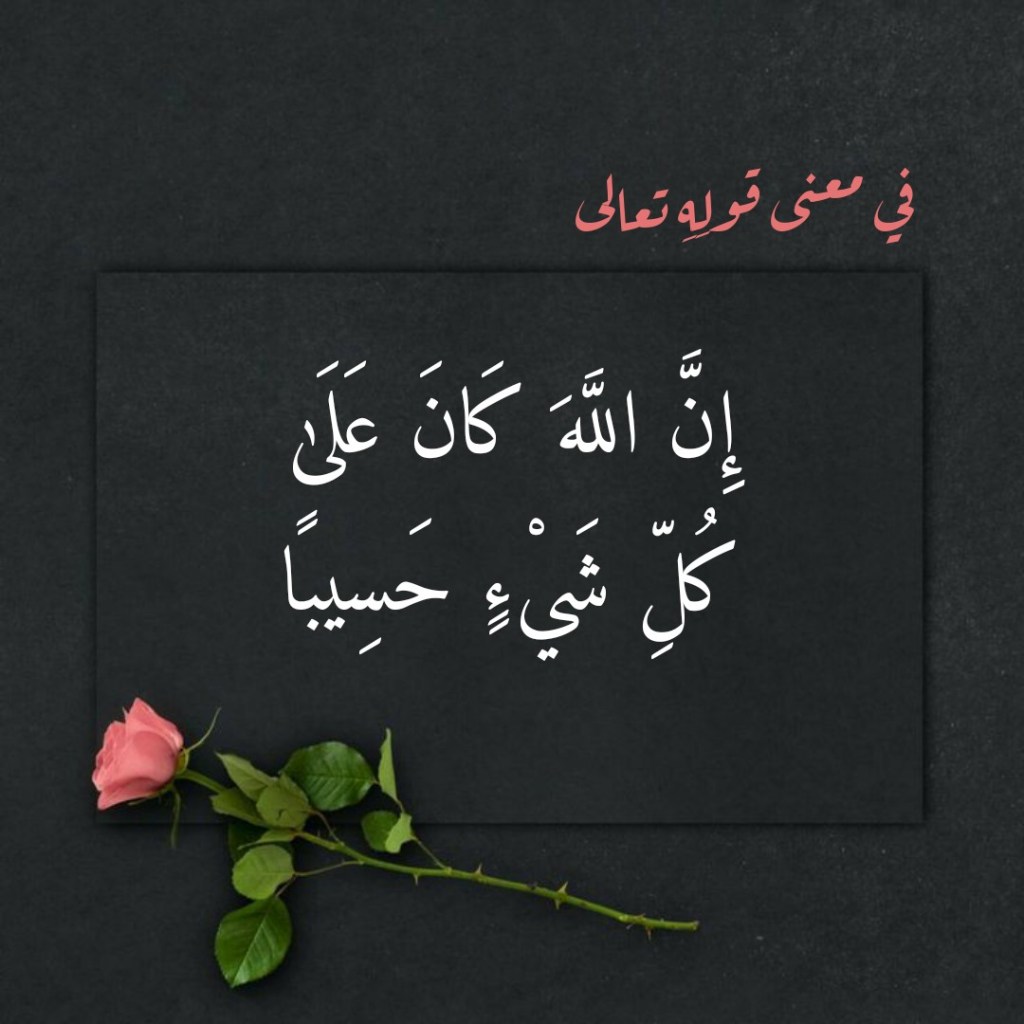 في معنى قولِهِ تعالى
إِنَّ اللَّهَ كَانَ عَلَىٰ
كُلِّ شَيْءٍ حَسِيبًا